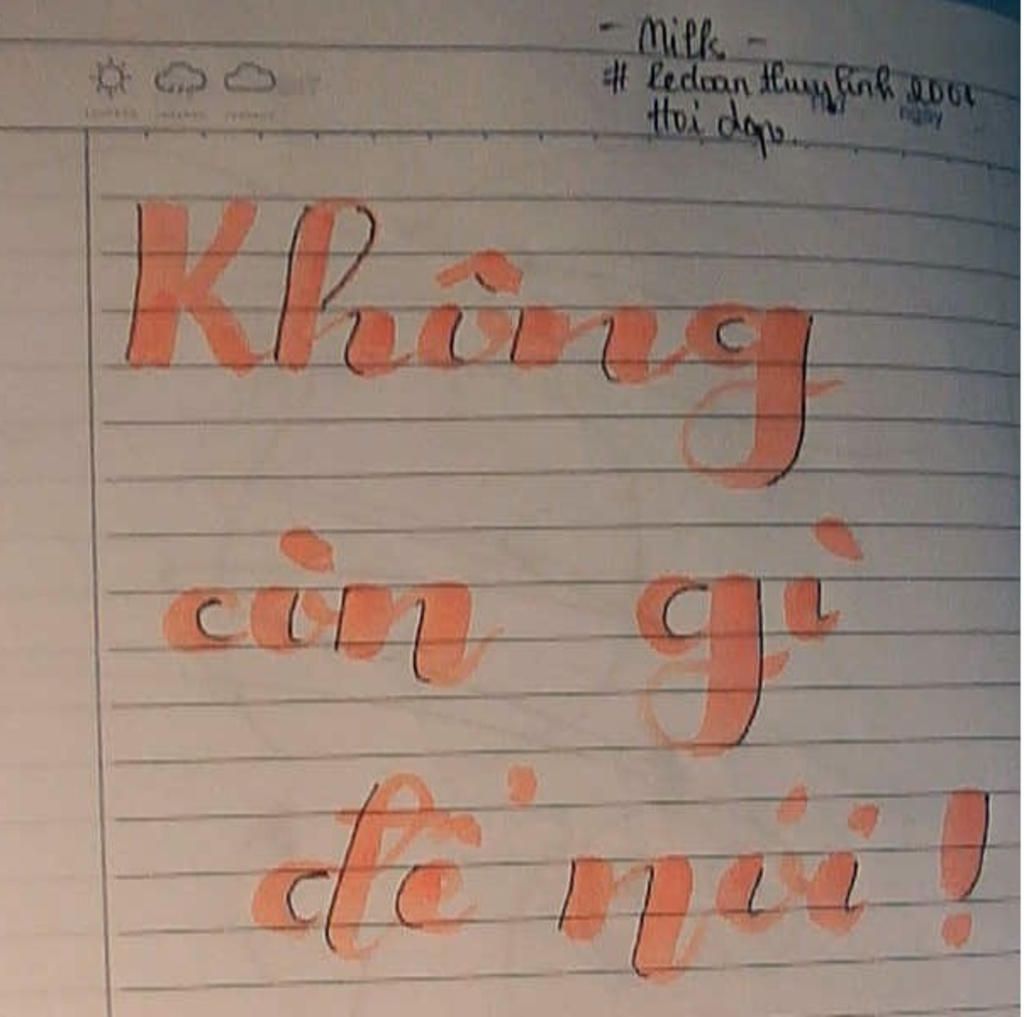 - Milk -
# ledoanthuylinh2001
Hoi dap
ngày
Không
còn gì
để nói !